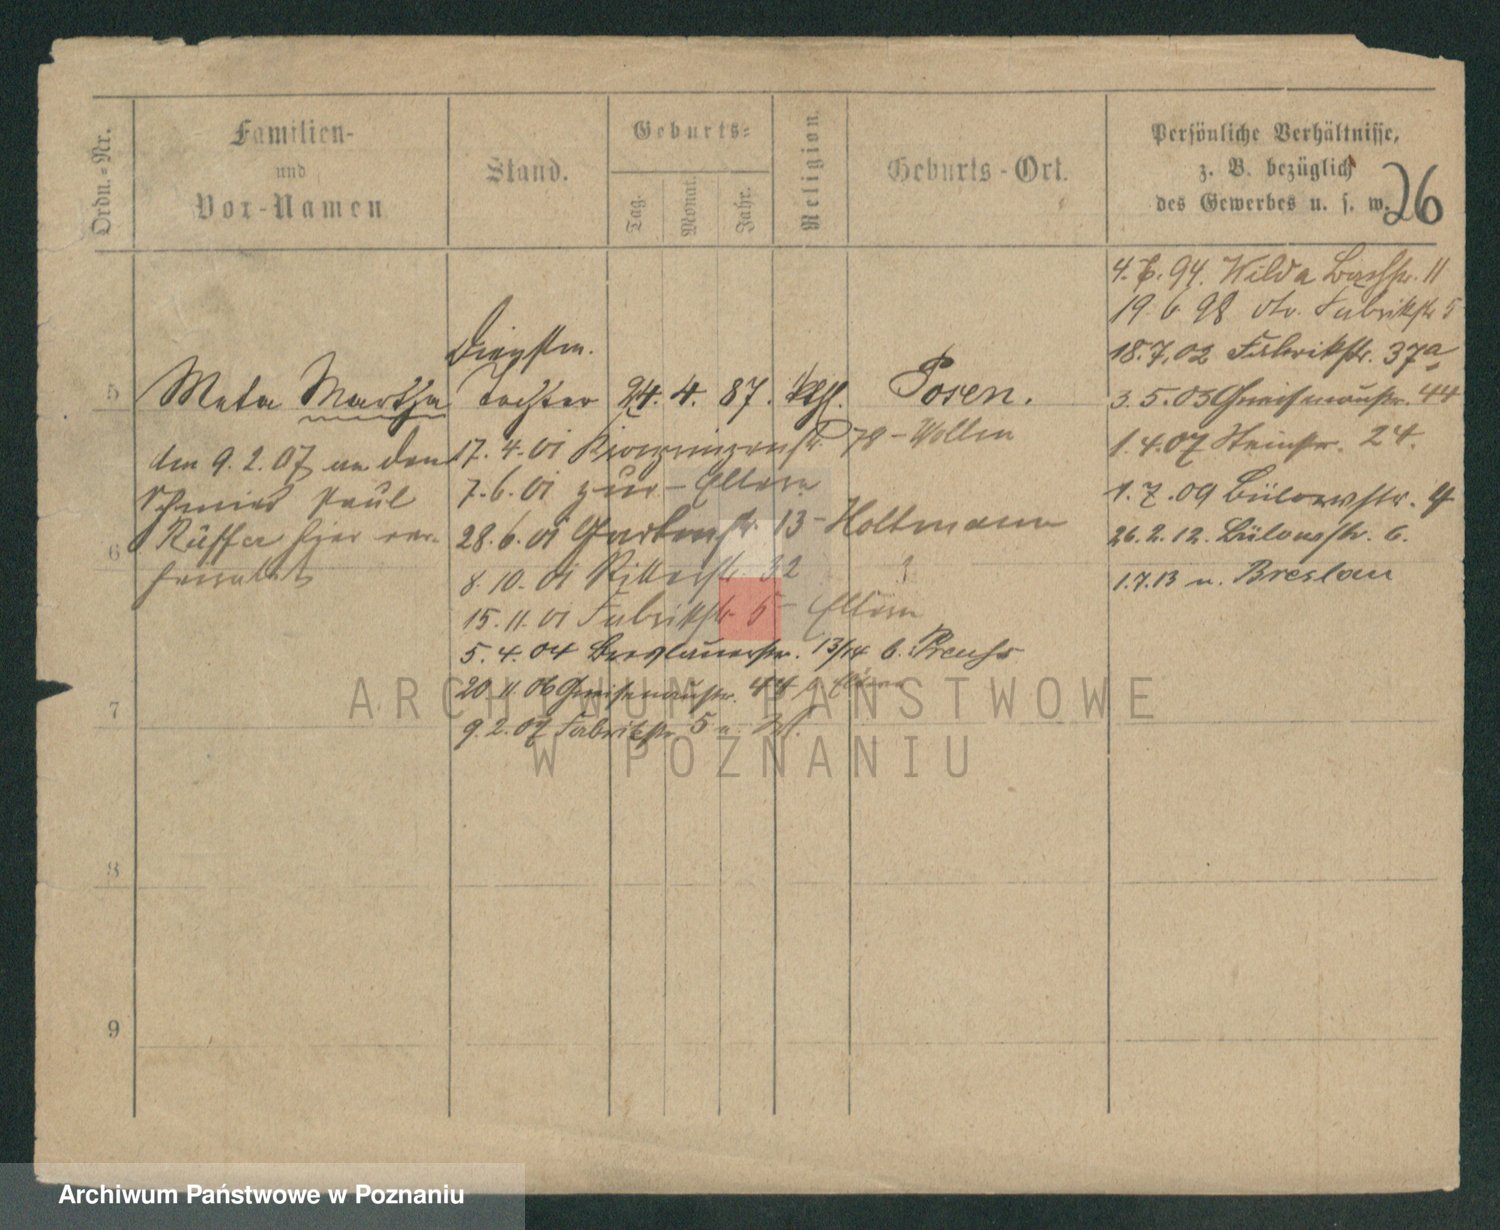 Ordn.-Nr.
Familien-
und
Vor-Namen
Stand.
Geburts-
Tag.
Monat.
Jahr.
Religion.
Geburts-Ort.
Persönliche Verhältnisse,
z. B. bezüglich
des Gewerbes u. s. w.
26
4. 6. 94. Wilda 11
19. 6 98 Fabrikstr 5
18. 7. 02 Fabrikstr. 37a
3. 5. 03 Gneisenaustr. 44
1. 4. 07 Steinstr. 24.
1. 7. 09 Bülowstr. 4
26. 2. 12. Bülowstr. 6.
1. 7. 13 n. Breslau
Dienstm.
5 Meta Martha Tochter 24. 4. 87. Posen.
den 9. 2. 07 an den
Schmied Paul
Rüffer hier ver-
heiratet
17. 4. 01 78 - Wollin
7. 6. 01 zur - Eltern
28. 6. 01 Gartenstr. 13 - Holtmann
8. 10. 01 Ritterstr. 32 ?
15. 11. 01 Fabrikstr. 5 - Eltern
5. 4. 04 Breslauerstr. 13/14 b. Preuhs
20. 11. 06 Gneisenaustr. 44 Eltern
9. 2. 07 Fabrikstr 5
6
7
8
9
ARCHIWUM PAŃSTWOWE
W POZNANIU
Archiwum Państwowe w Poznaniu